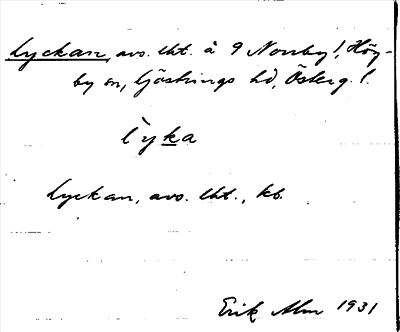 Lyckan, avs. lht. å 9 Norrby /, Hög-
by sn, Göstrings hd, Österg. l.
l`yka
Lyckan, avs. lht., kb.
Erik Alm 1931